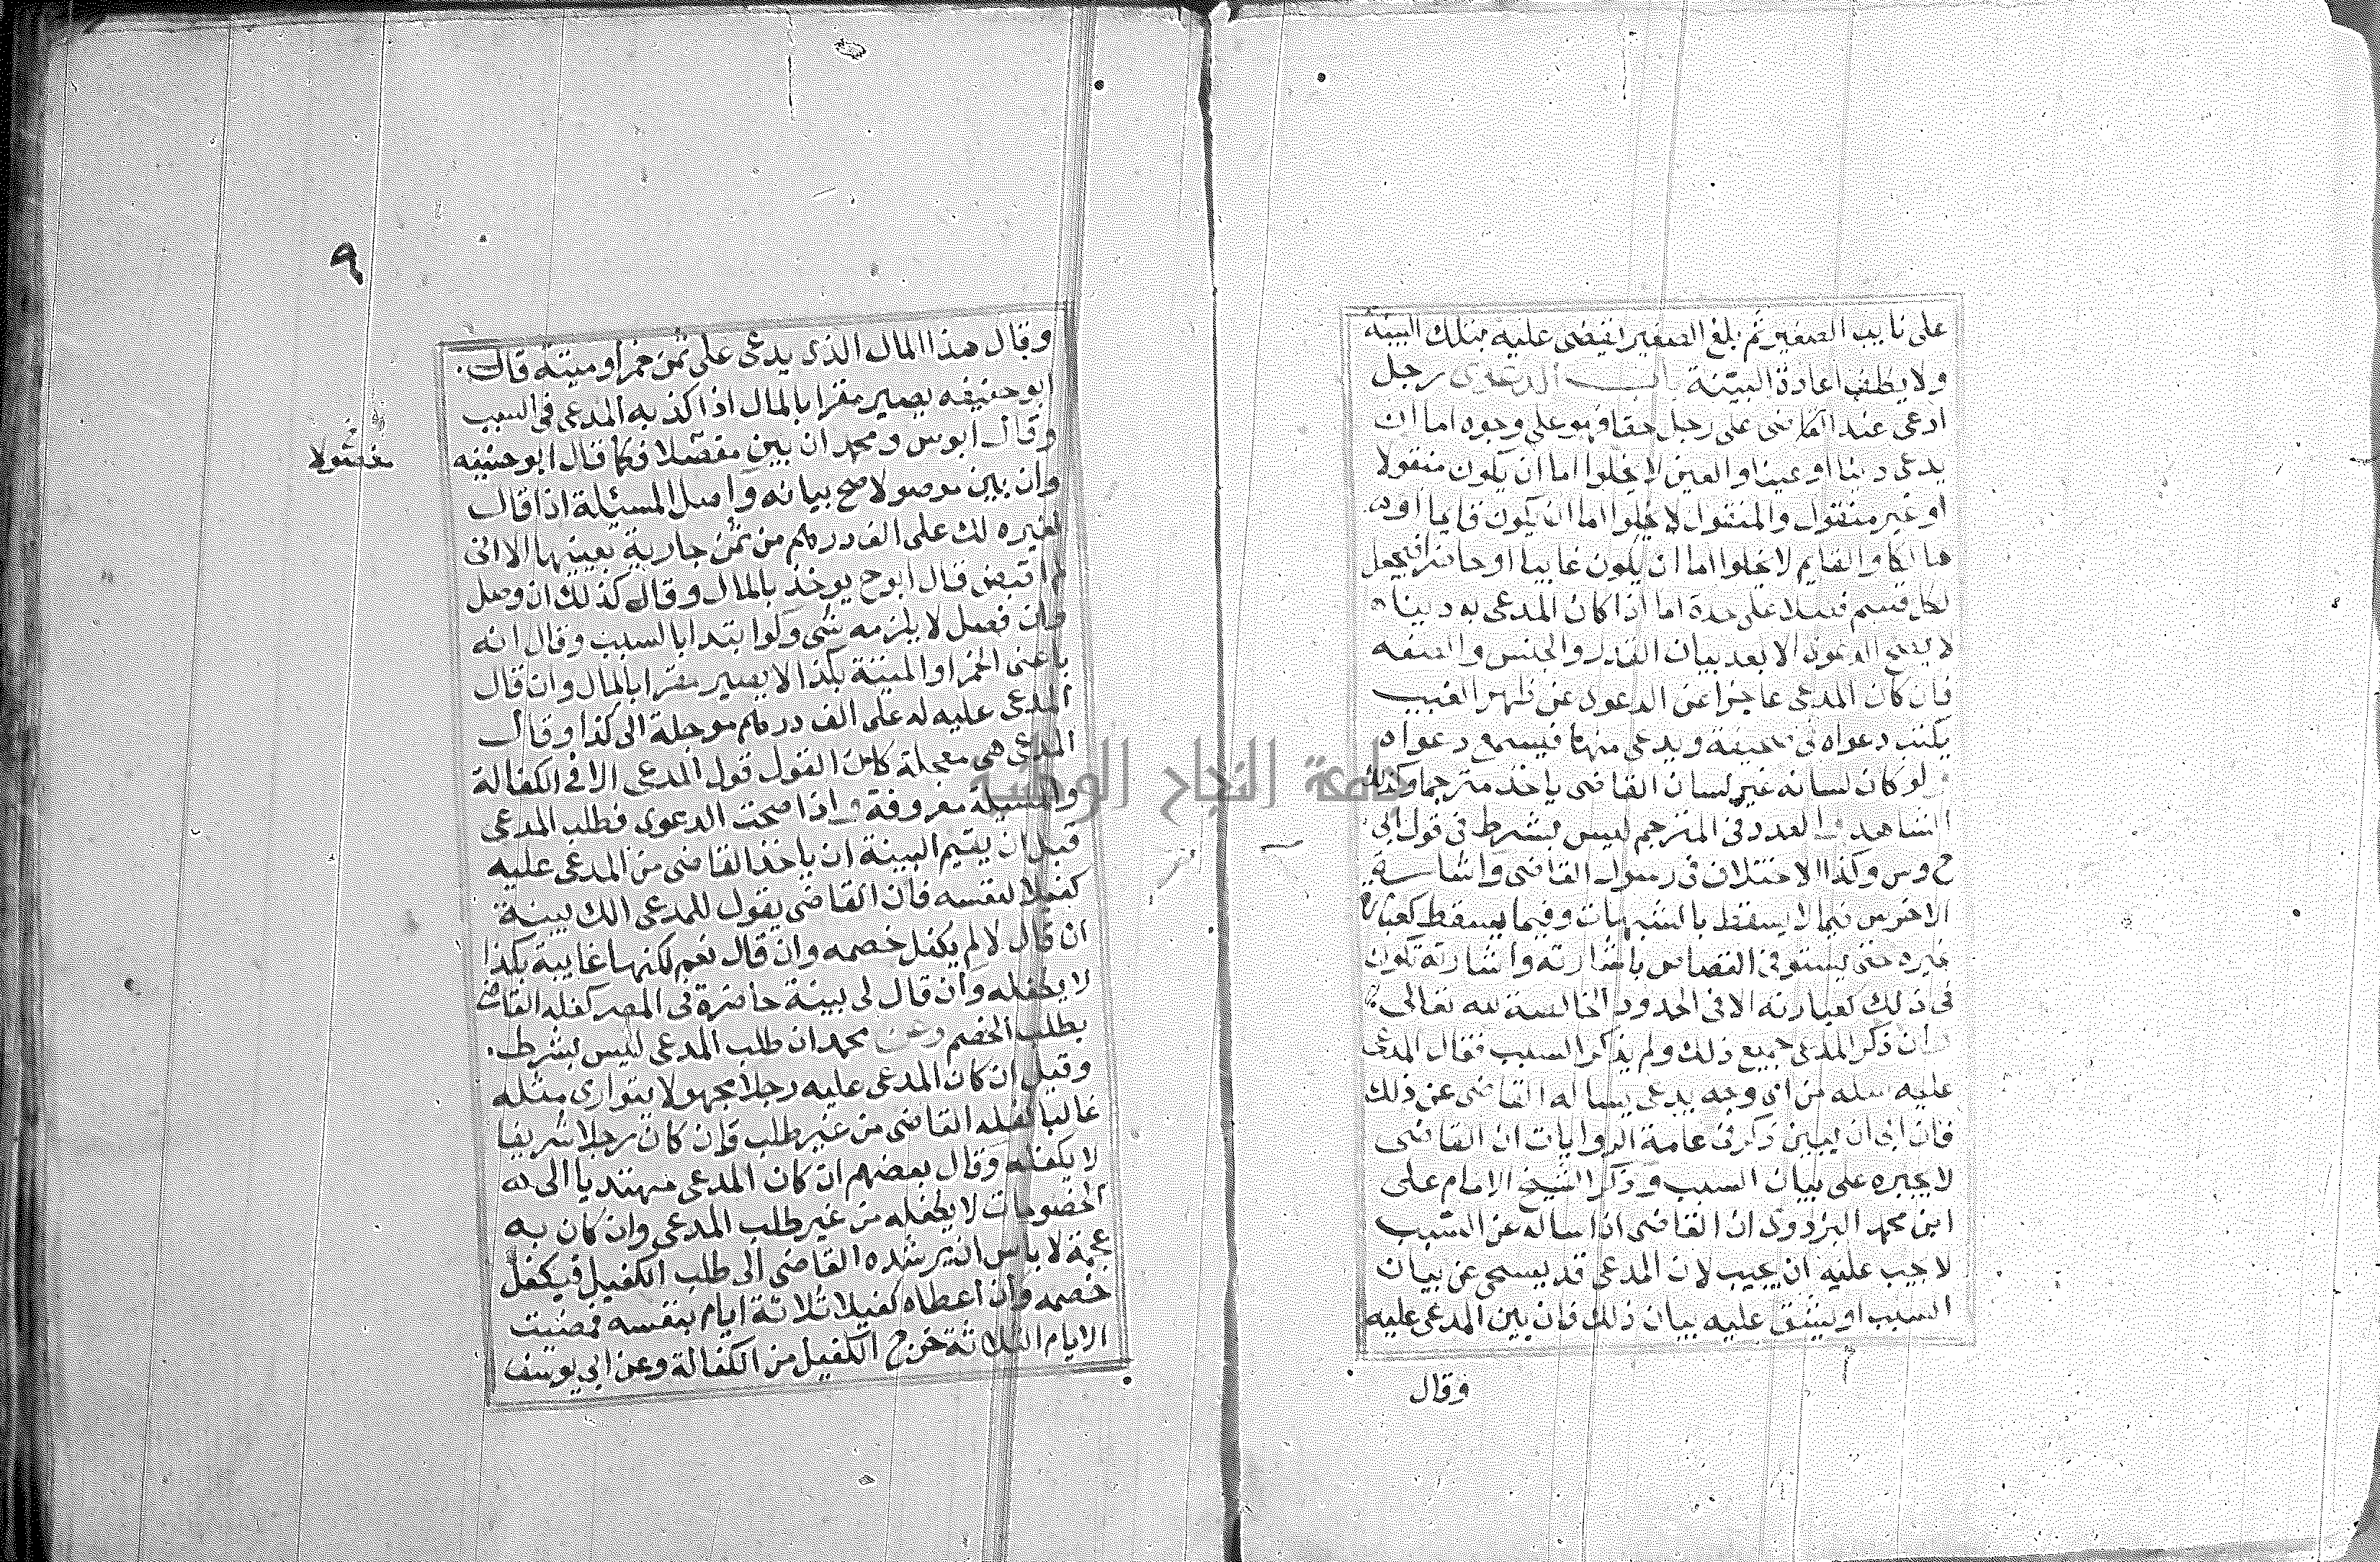 على نايب الصغير ثم بلغ الصغير يقضى عليه بتلك البينة
ولا يكلف اعادة البينة باب الدعوى رجل
ادعى عند القاضى على رجل حقا فهو على وجوه اما ان
يدعى دينا او عينا والعين لا يخلوا اما ان يكون منقولا
او غير منقول والمنقول لا يخلوا اما ان يكون قايما او
هالكا والقايم لا يخلوا اما ان يكون غايبا او حاضرا فيجعل
لكل قسم فصلا على حدة اما اذا كان المدعى به دينا
لا يصح الدعوى الا بعد بيان القدر والجنس والصفه
فان كان المدعى عاجزا عن الدعوى عن ظهر الغيب
يكتب دعواه فى صحيفة ويدعى منها فيسمع دعواه
لو كان لسانه غير لسان القاضى ياخذ مترجما وكذلك
الشاهد والعدد فى المترجم ليس بشرط فى قول ابى
ح وس وكذا الاختلاف فى رسول القاضى واشارة
الاخرس فيما لا يسقط بالشبهات وفيما يسقط كعبارة
غيره حتى يستوفى القصاص باشارته واشارته تكون
فى ذلك كعبارته الا فى الحدود الخالصة لله تعالى
وان ذكر المدعى جميع ذلك ولم يذكر السبب فقال المدعى
عليه سله من اى وجه يدعى يساله القاضى عن ذلك
فان ابى ان يبين ذكر فى عامة الروايات ان القاضى
لا يجبره على بيان السبب وذكر الشيخ الامام على
ابن محمد البزدوى ان القاضى ان اساله عن السبب
لا يجب عليه ان يجيب لان المدعى قد يستحى عن بيان
السبب او يشق عليه بيان ذلك فان بين المدعى عليه
وقال
٩
وقال هذا المال الذى يدعى على ثمن خمر او ميتة قال
ابو حنيفه يصير مقرا بالمال اذا كذبه المدعى فى السبب
وقال ابوس ومحمد ان بين مفصلا فكما قال ابو حنيفه
وان بين موصولا صح بيانه واصل المسئلة اذا قال
لغيره لك على الف درهم من ثمن جارية بعينها الا انى
لم اقبض قال ابوح يوخذ بالمال وقال كذلك ان وصل
وان فصل لا يلزمه شى ولو ابتدا بالسبب وقال انه
باعنى الخمر او الميتة بكذا لا يصير مقرا بالمال وان قال
المدعى عليه له على الف درهم موجلة الى كذا وقال
المدعى هى معجلة كان القول قول المدعى الا فى الكفالة
والمسيلة معروفة واذا صحت الدعوى فطلب المدعى
قبل ان يقيم البينة ان ياخذ القاضى من المدعى عليه
كفيلا لنفسه فان القاضى يقول للمدعى الك بينة
ان قال لا لم يكفل خصمه وان قال نعم لكنها غايبة بكذا
لا يكفله وان قال لى بينة حاضرة فى المصر كفله القاضى
بطلب الخصم وعن محمد ان طلب المدعى ليس بشرط
وقيل ان كان المدعى عليه رجلا مجهولا يتوارى مثله
غالبا كفله القاضى من غير طلب وان كان رجلا شريفا
لا يكفله وقال بعضهم ان كان المدعى مهتديا الى
الخصومات لا يكفله من غير طلب المدعى وان كان به
عجمة لا باس ان يرشده القاضى الى طلب الكفيل فيكفل
خصمه وان اعطاه كفيلا ثلاثة ايام بنفسه فمضت
الايام الثلاثة خرج الكفيل من الكفالة وعن ابى يوسف
جامعة النجاح الوطنية